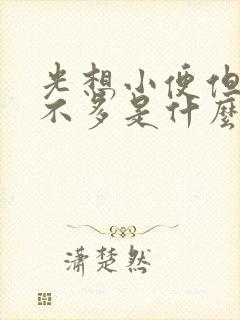 光想小便但
不多是什麼
瀟楚然